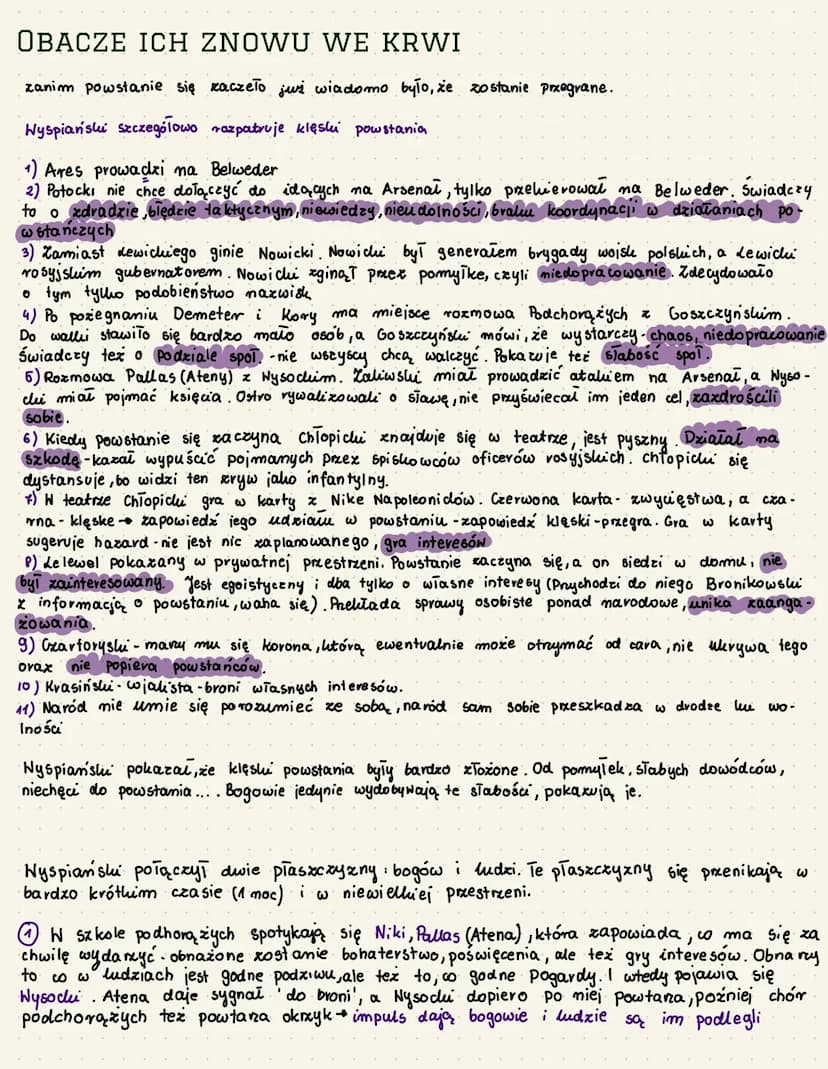 OBACZE ICH ZNOWU WE KRWI
zanim powstanie się zaczeło już wiadomo było, że zostanie przegrane.
Wyspiański szczegółowo rozpatruje klęski powstania
1) Ares prowadzi na Belweder
2) Potocki nie chce dołączyć do idących na Arsenał, tylko przekierował na Belweder. Świadczy
to o zdradzie, błędzie taktycznym, niewiedzy, nieudolności, braku koordynacji w działaniach po-
wstańczych
3) Zamiast Lewickiego ginie Nowicki. Nowicki był generałem brygady wojsk polskich, a Lewicki
rosyjskim gubernatorem. Nowicki zginął przez pomyłke, czyli niedopracowanie. Zdecydowało
o tym tylko podobieństwo nazwisk
4) Po pożegnaniu Demeter i Kory ma miejsce rozmowa Podchorążych z Goszczyńskim.
Do walki stawiło się bardzo mało osób, a Goszczyński mówi, że wystarczy - chaos, niedopracowanie
Świadczy też o Podziale społ. - nie wszyscy chcą walczyć. Pokazuje też słabość społ.
5) Rozmowa Pallas (Ateny) z Wysockim. Zaliwski miał prowadzić atakiem na Arsenał, a Wyso-
cki miał pojmać księcia. Ostro rywalizowali o sławę, nie przyświecał im jeden cel, zazdrościli
sobie.
6) Kiedy powstanie się zaczyna Chłopicki znajduje się w teatrze, jest pyszny. Działał na
szkodę - kazał wypuścić pojmanych przez spiskowców oficerów rosyjskich. Chłopicki się
dystansuje, bo widzi ten zryw jako infantylny.
7) W teatrze Chłopicki gra w karty z Nike Napoleonidów. Czerwona karta - zwycięstwa, a cza-
rna - klęske → zapowiedź jego udziału w powstaniu - zapowiedź klęski - przegra. Gra w karty
sugeruje hazard - nie jest nic zaplanowanego, gra interesów
8) Lelewel pokazany w prywatnej przestrzeni. Powstanie zaczyna się, a on siedzi w domu, nie
był zainteresowany. Jest egoistyczny i dba tylko o własne interesy (Przychodzi do niego Bronikowski
z informacją o powstaniu, waha się). Przekłada sprawy osobiste ponad narodowe, unika zaanga-
żowania.
9) Czartoryski - marzy mu się korona, którą ewentualnie może otrzymać od cara, nie ukrywa tego
oraz nie popiera powstańców.
10) Krasiński - lojalista - broni własnych interesów.
11) Naród nie umie się porozumieć ze sobą, naród sam sobie przeszkadza w drodze ku wo-
lności
Wyspiański pokazał, że klęski powstania były bardzo złożone. Od pomyłek, słabych dowódców,
niechęci do powstania.... Bogowie jedynie wydobywają te słabości, pokazują je.
Wyspiański połączył dwie płaszczyzny: bogów i ludzi. Te płaszczyzny się przenikają w
bardzo krótkim czasie (1 noc) i w niewielkiej przestrzeni.
① W szkole podhorążych spotykają się Niki, Pallas (Atena), która zapowiada, co ma się za
chwilę wydarzyć - obnażone zostanie bohaterstwo, poświęcenia, ale też gry interesów. Obnaży
to co w ludziach jest godne podziwu, ale też to, co godne pogardy. I wtedy pojawia się
Wysocki. Atena daje sygnał 'do broni', a Wysocki dopiero po niej powtarza, poźniej chór
podchorążych też powtarza okrzyk → impuls dają bogowie i ludzie są im podlegli